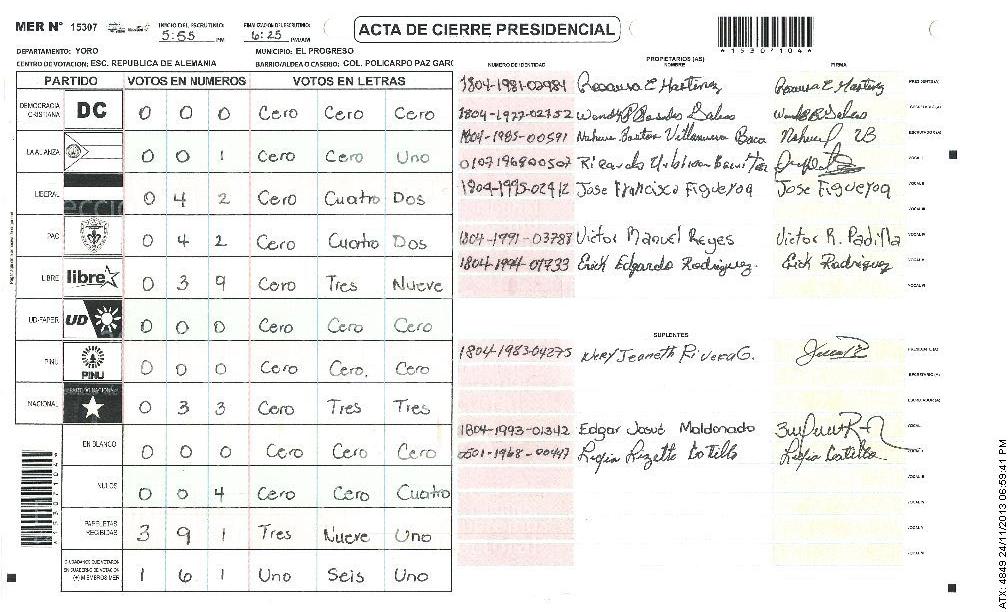 MER Nº 15307
INICIO DEL ESCRUTINIO: 5:55 PM
FINALIZACION DEL ESCRUTINIO: 6:25 PM/AM
ACTA DE CIERRE PRESIDENCIAL
*15307104*
DEPARTAMENTO: YORO
MUNICIPIO: EL PROGRESO
CENTRO DE VOTACION: ESC. REPUBLICA DE ALEMANIA
BARRIO/ALDEA O CASERIO: COL. POLICARPO PAZ GARC
PARTIDO VOTOS EN NUMEROS VOTOS EN LETRAS
DEMOCRACIA CRISTIANA DC 0 0 0 Cero Cero Cero
LA ALIANZA 0 0 1 Cero Cero Uno
LIBERAL 0 4 2 Cero Cuatro Dos
PAC 0 4 2 Cero Cuatro Dos
LIBRE libre 0 3 9 Cero Tres Nueve
UD-FAPER UD 0 0 0 Cero Cero Cero
PINU PINU 0 0 0 Cero Cero. Cero
NACIONAL 0 3 3 Cero Tres Tres
EN BLANCO 0 0 0 Cero Cero Cero
NULOS 0 0 4 Cero Cero Cuatro
PAPELETAS RECIBIDAS 3 9 1 Tres Nueve Uno
CIUDADANOS QUE VOTARON EN CUADERNO DE VOTACION (+) MIEMBROS MER 1 6 1 Uno Seis Uno
PROPIETARIOS (AS)
NUMERO DE IDENTIDAD NOMBRE FIRMA
1804-1981-02984 Rosaura E Martinez Rosaura E Martinez
1804-1977-02752
1804-1985-00591 Nahum Gaston Villanueva Baca Nahum VB
0107196800507 Ricardo
1804-1995-02912 Jose Francisco Figueroa Jose Figueroa
1804-1991-03788 Victor Manuel Reyes Victor R. Padilla
1804-1994-01733 Erick Edgardo Rodriguez. Erick Rodriguez
SUPLENTES
1804-1983-04275 Nery Janeth Rivera G.
1804-1993-01342 Edgar Josué Maldonado
0501-1968-00447 Ligia Lizette Castillo Ligia Castillo
ATX: 4849 24/11/2013 06:59:41 PM